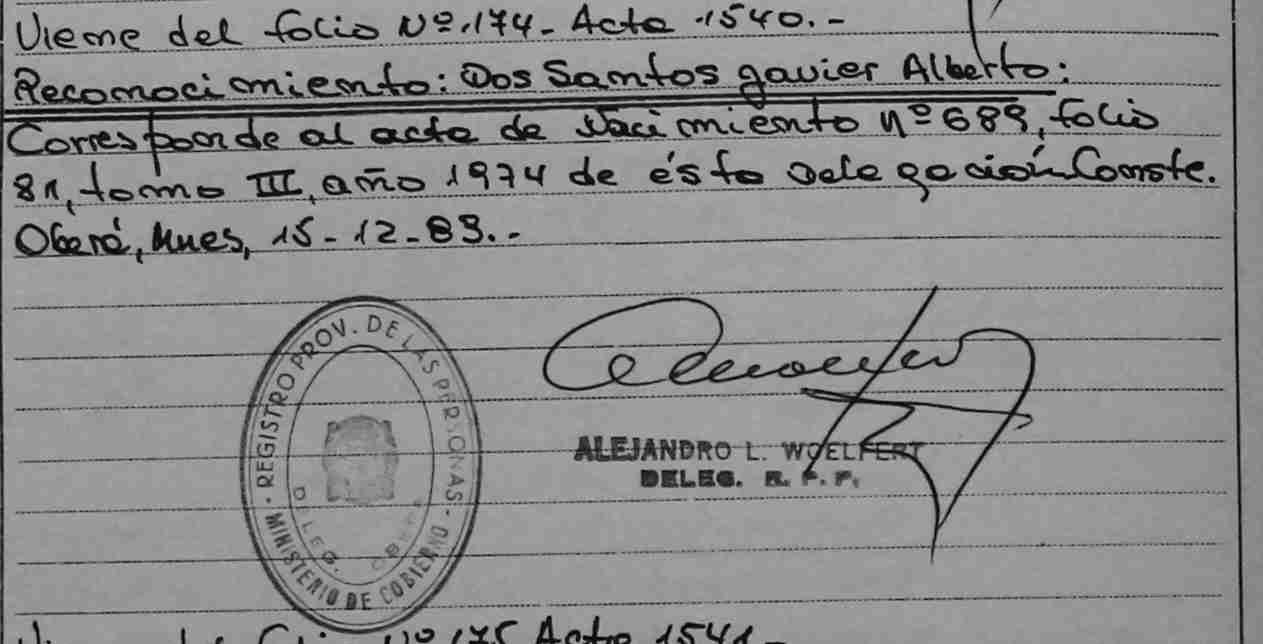 Viene del folio Nº.174- Acta 1540.-
Reconocimiento: Dos Santos Javier Alberto:
Corresponde al acta de Nacimiento nº 689, folio
81, tomo III, año 1974 de ésta Delegación Conste.
Oberá, Mnes, 15-12-83.-
REGISTRO PROV. DE LAS PERSONAS - MINISTERIO DE GOBIERNO -
DELEG. OBERA
ALEJANDRO L. WOELFERT
DELEG. R. P. P.
Folio Nº 175 Acta 1541-